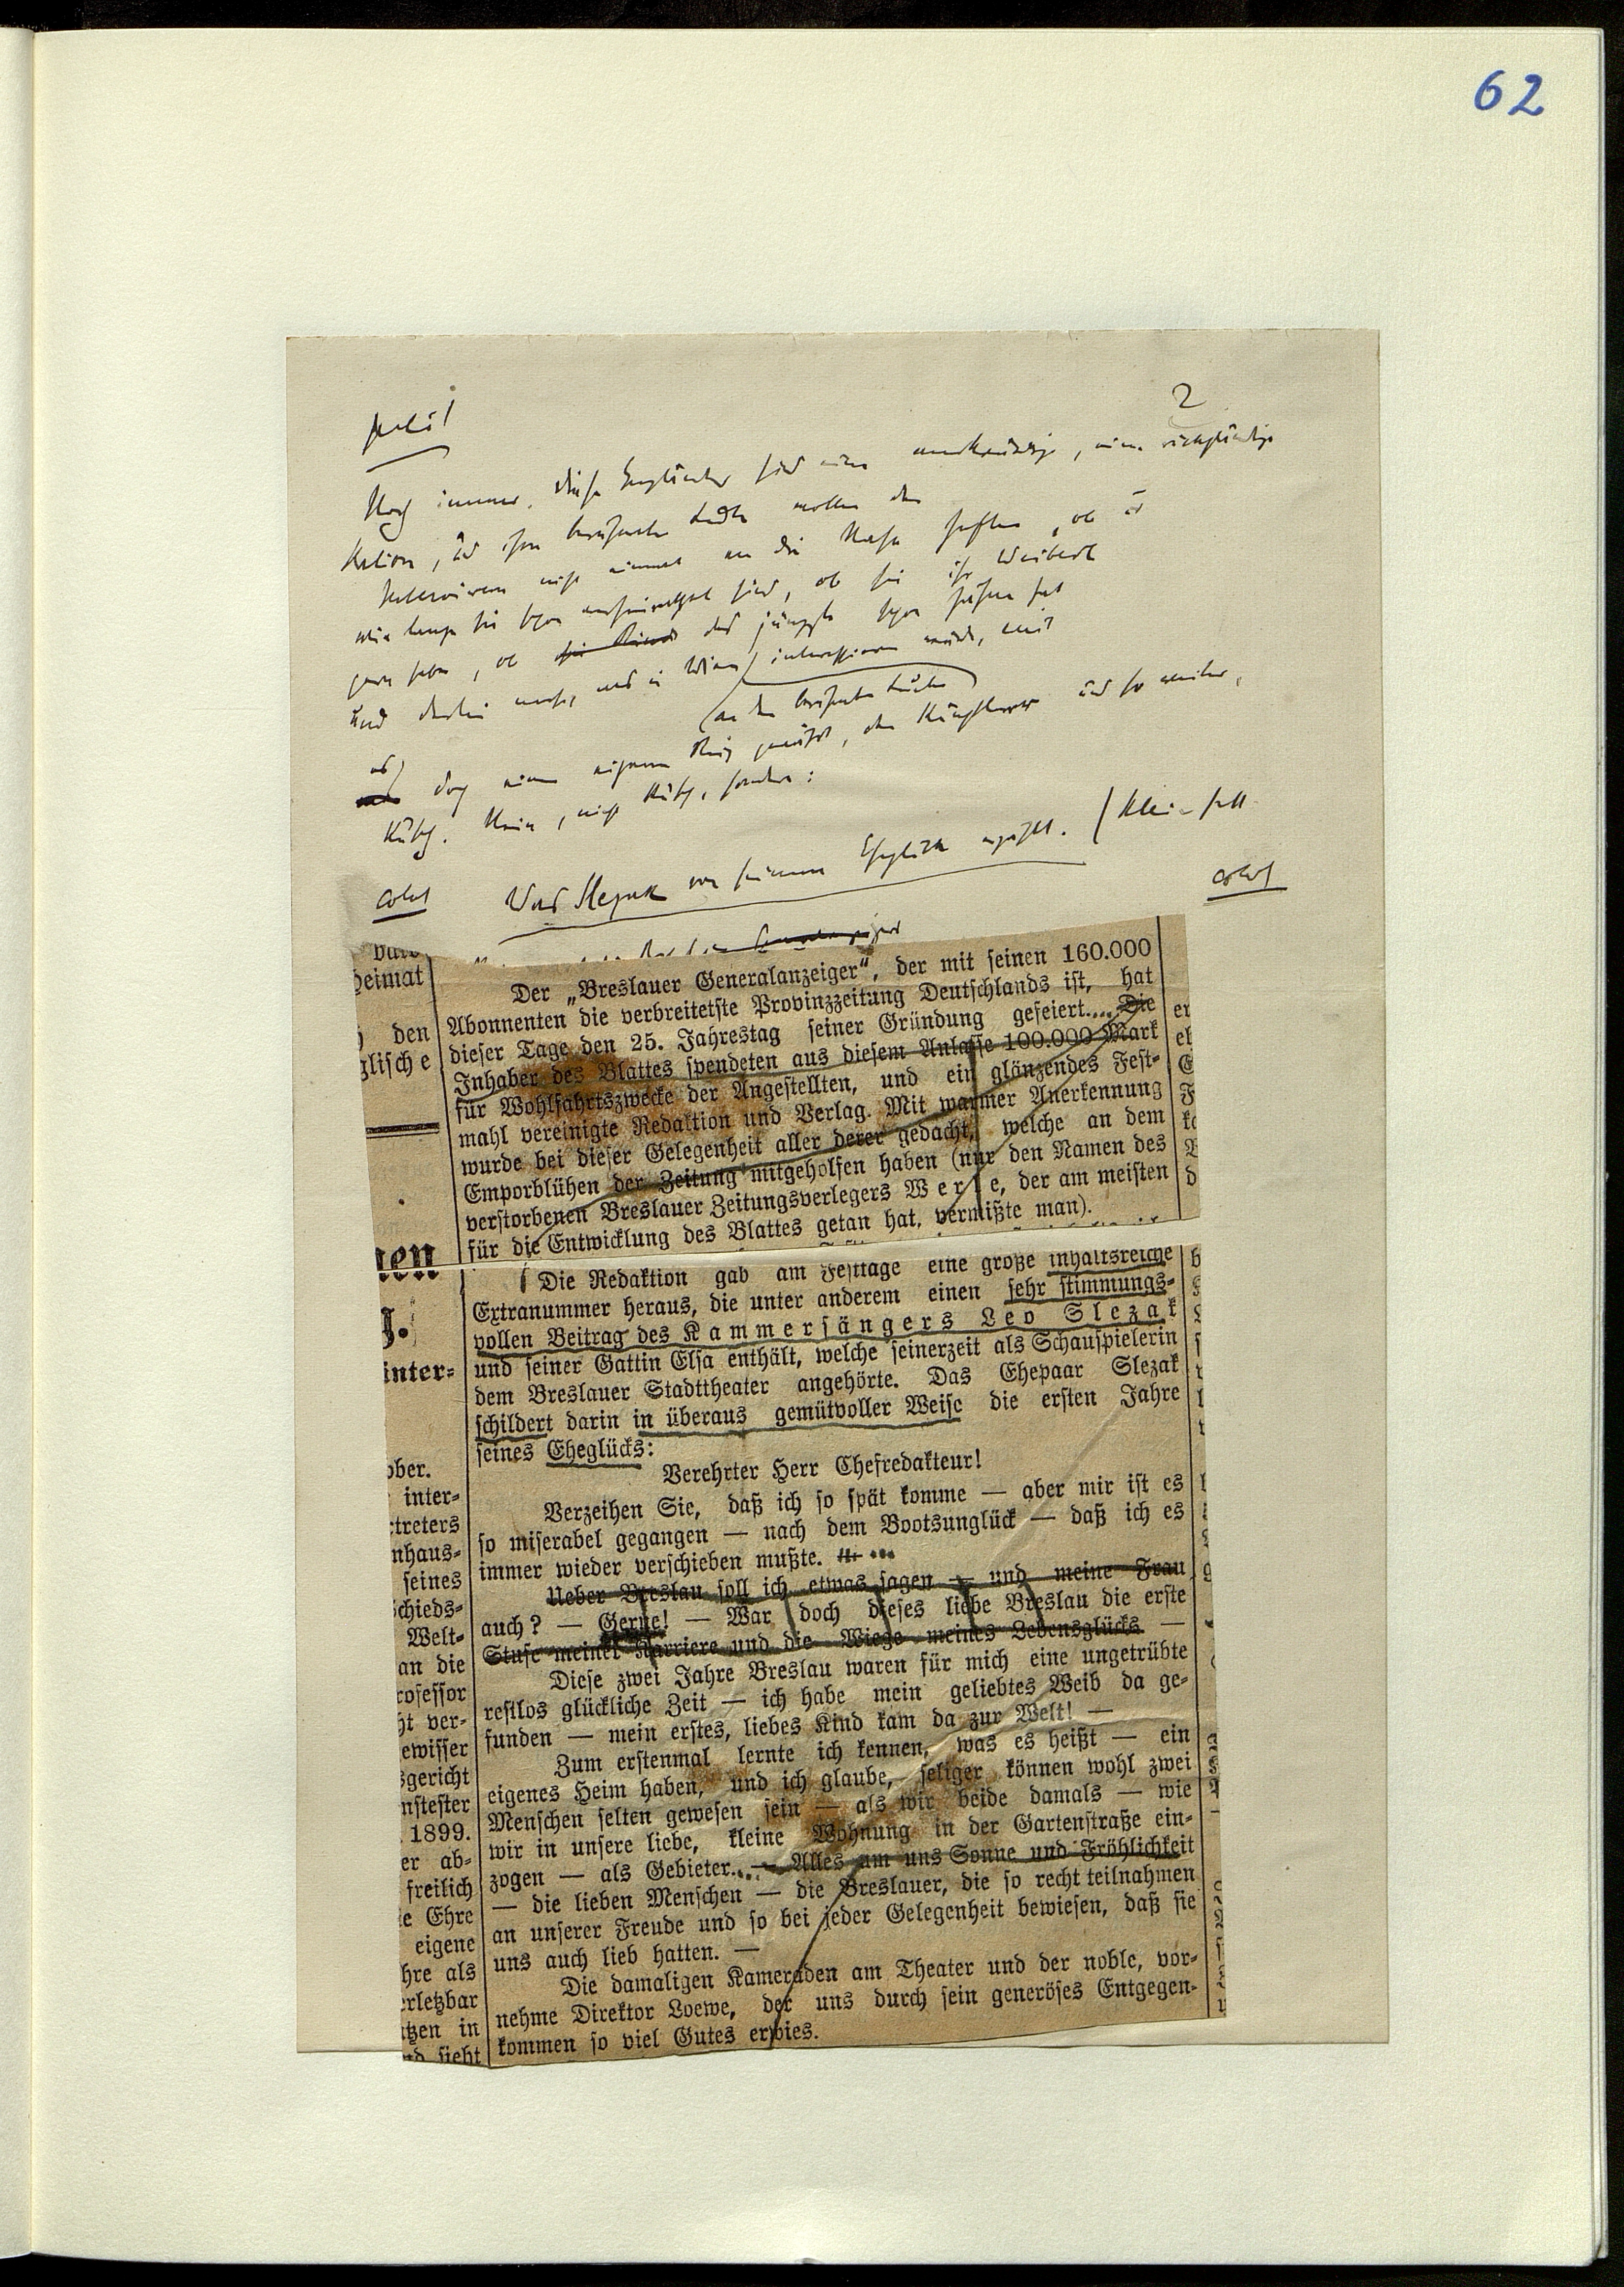 62
2
Noch immer. Diese Engländer sind eine merkwürdige, eine rückständige
Nation, und ihre berühmten Leute wollen den
Interviewern nicht einmal an die Nase heften, ob und
wie lange sie schon verheiratet sind, ob sie ihr Weiberl
gern haben, ob das jüngste schon
und derlei mehr, was in Wien interessieren würde, weil
an den berühmten Leuten
es doch einen eigenen Reiz gewährt, den Künstlern und so weiter,
Nein, nicht, sondern:
Was Slezak von seinem Eheglück erzählt.
Der „Breslauer Generalanzeiger“, der mit seinen 160.000
Abonnenten die verbreitetste Provinzzeitung Deutschlands ist, hat
dieser Tage den 25. Jahrestag seiner Gründung gefeiert.... Die
Inhaber des Blattes spendeten aus diesem Anlasse 100.000 Mark
für Wohlfahrtszwecke der Angestellten, und ein glänzendes Fest-
mahl vereinigte Redaktion und Verlag. Mit warmer Anerkennung
wurde bei dieser Gelegenheit aller derer gedacht, welche an dem
Emporblühen der Zeitung mitgeholfen haben (nur den Namen des
verstorbenen Breslauer Zeitungsverlegers Werle, der am meisten
für die Entwicklung des Blattes getan hat, vermißte man).
Die Redaktion gab am Festtage eine große inhaltsreiche
Extranummer heraus, die unter anderem einen sehr stimmungs-
vollen Beitrag des Kammersängers Leo Slezak
und seiner Gattin Elsa enthält, welche seinerzeit als Schauspielerin
dem Breslauer Stadttheater angehörte. Das Ehepaar Slezak
schildert darin in überaus gemütvoller Weise die ersten Jahre
seines Eheglücks:
Verehrter Herr Chefredakteur!
Verzeihen Sie, daß ich so spät komme — aber mir ist es
so miserabel gegangen — nach dem Bootsunglück — daß ich es
immer wieder verschieben mußte. ...
Ueber Breslau soll ich etwas sagen — und meine Frau
auch? — Gerne! — War doch dieses liebe Breslau die erste
Stufe meiner Karriere und die Wiege meines Lebensglücks —
Diese zwei Jahre Breslau waren für mich eine ungetrübte
restlos glückliche Zeit — ich habe mein geliebtes Weib da ge-
funden — mein erstes, liebes Kind kam da zur Welt! —
Zum erstenmal lernte ich kennen, was es heißt — ein
eigenes Heim haben, und ich glaube, seliger können wohl zwei
Menschen selten gewesen sein — als wir beide damals — wie
wir in unsere liebe, kleine Wohnung in der Gartenstraße ein-
zogen — als Gebieter... — Alles um uns Sonne und Fröhlichkeit
— die lieben Menschen — die Breslauer, die so recht teilnahmen
an unserer Freude und so bei jeder Gelegenheit bewiesen, daß sie
uns auch lieb hatten. —
Die damaligen Kameraden am Theater und der noble, vor-
nehme Direktor Loewe, der uns durch sein generöses Entgegen-
kommen so viel Gutes erwies.
heimat
den
glische
inter-
ober.
inter-
rtreters
nhaus-
seines
schieds-
Welt-
an die
rofessor
ht ver-
ewisser
sgericht
nstester
1899.
er ab-
freilich
e Ehre
eigene
hre als
erletzbar
tzen in
nd sieht